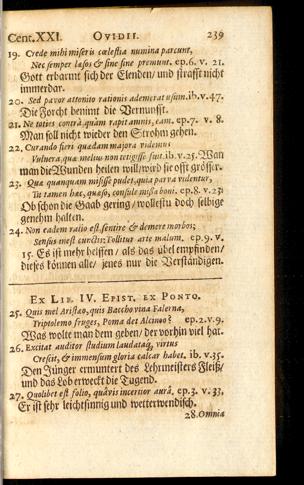 Cent. XXI. OVIDII. 239
19. Crede mihi miseris cœlestia numina parcunt,
Nec semper læsos & sine fine premunt. ep. 6. v. 21.
Gott erbarmt sich der Elenden/ und strafft nicht
immerdar.
20. Sed pavor attonito rationis ademerat usum. ib. v. 47.
Die Forcht benimt die Vernunfft.
21. Ne coties contrà quàm rapit amnis, eam. ep. 7. v. 8.
Man soll nicht wieder den Strohm gehen.
22. Curando fieri quædam majora videmus
Vulnera, quæ melius non tetigisse fuit. ib. v. 25. Wan
man die Wunden heilen will/ wird sie offt grösser.
23. Qua quanquam misisse pudet, quia parva videntur,
Tu tamen hæc, quæso, consule missa boni. ep. 8. v. 23
Ob schon die Gaab gering/ wollestu doch selbige
genehm halten.
24. Non eadem ratio est, sentire & demere morbos;
Sensus inest cunctis; Tollitur arte malum. ep. 9. v.
15. Es ist mehr helffen/ als das übel empfinden/
dieses können alle/ jenes nur die Verständigen.
EX LIB. IV. EPIST. EX PONTO.
25. Quis mel Aristæo, quis Baccho vina Falerna,
Triptolemo fruges, Poma det Alcinoo? ep. 2. v. 9.
Was wolte man dem geben/ der vorhin viel hat.
26. Excitat auditor studium laudataq; virtus
Crescit, & immensum gloria calcar habet. ib. v. 35.
Den Jünger ermuntert des Lehrmeisters Fleiß/
und das Lob erweckt die Tugend.
27. Quolibet est folio, quâvis incertior aurâ. ep. 3. v. 33.
Er ist sehr leichtsinnig und wetterwendisch.
28. Omnia